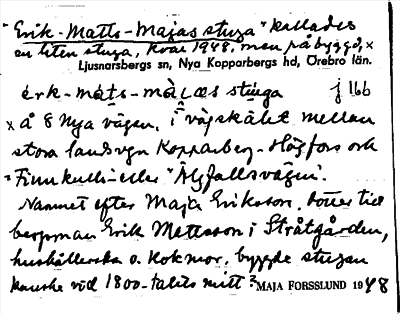 "Erik-Matts-Majas stuga" kallades
en liten stuga, kvar 1948, men påbyggd, x
Ljusnarsbergs sn, Nya Kopparbergs hd, Örebro län.
stuga
x Å S Nya vägen, i vägskälet mellan
stora landsvgn Kopparberg-Högfors och
"Finnkulls- eller "Älgfallsvägen".
Namnet efter Maja Eriksson, dotter till
bergsman Erik Mattsson i Stråtgården,
hushållerska o. kokmor, byggde stugan
kanske vid 1800-talets mitt? MAJA FORSSLUND 1948